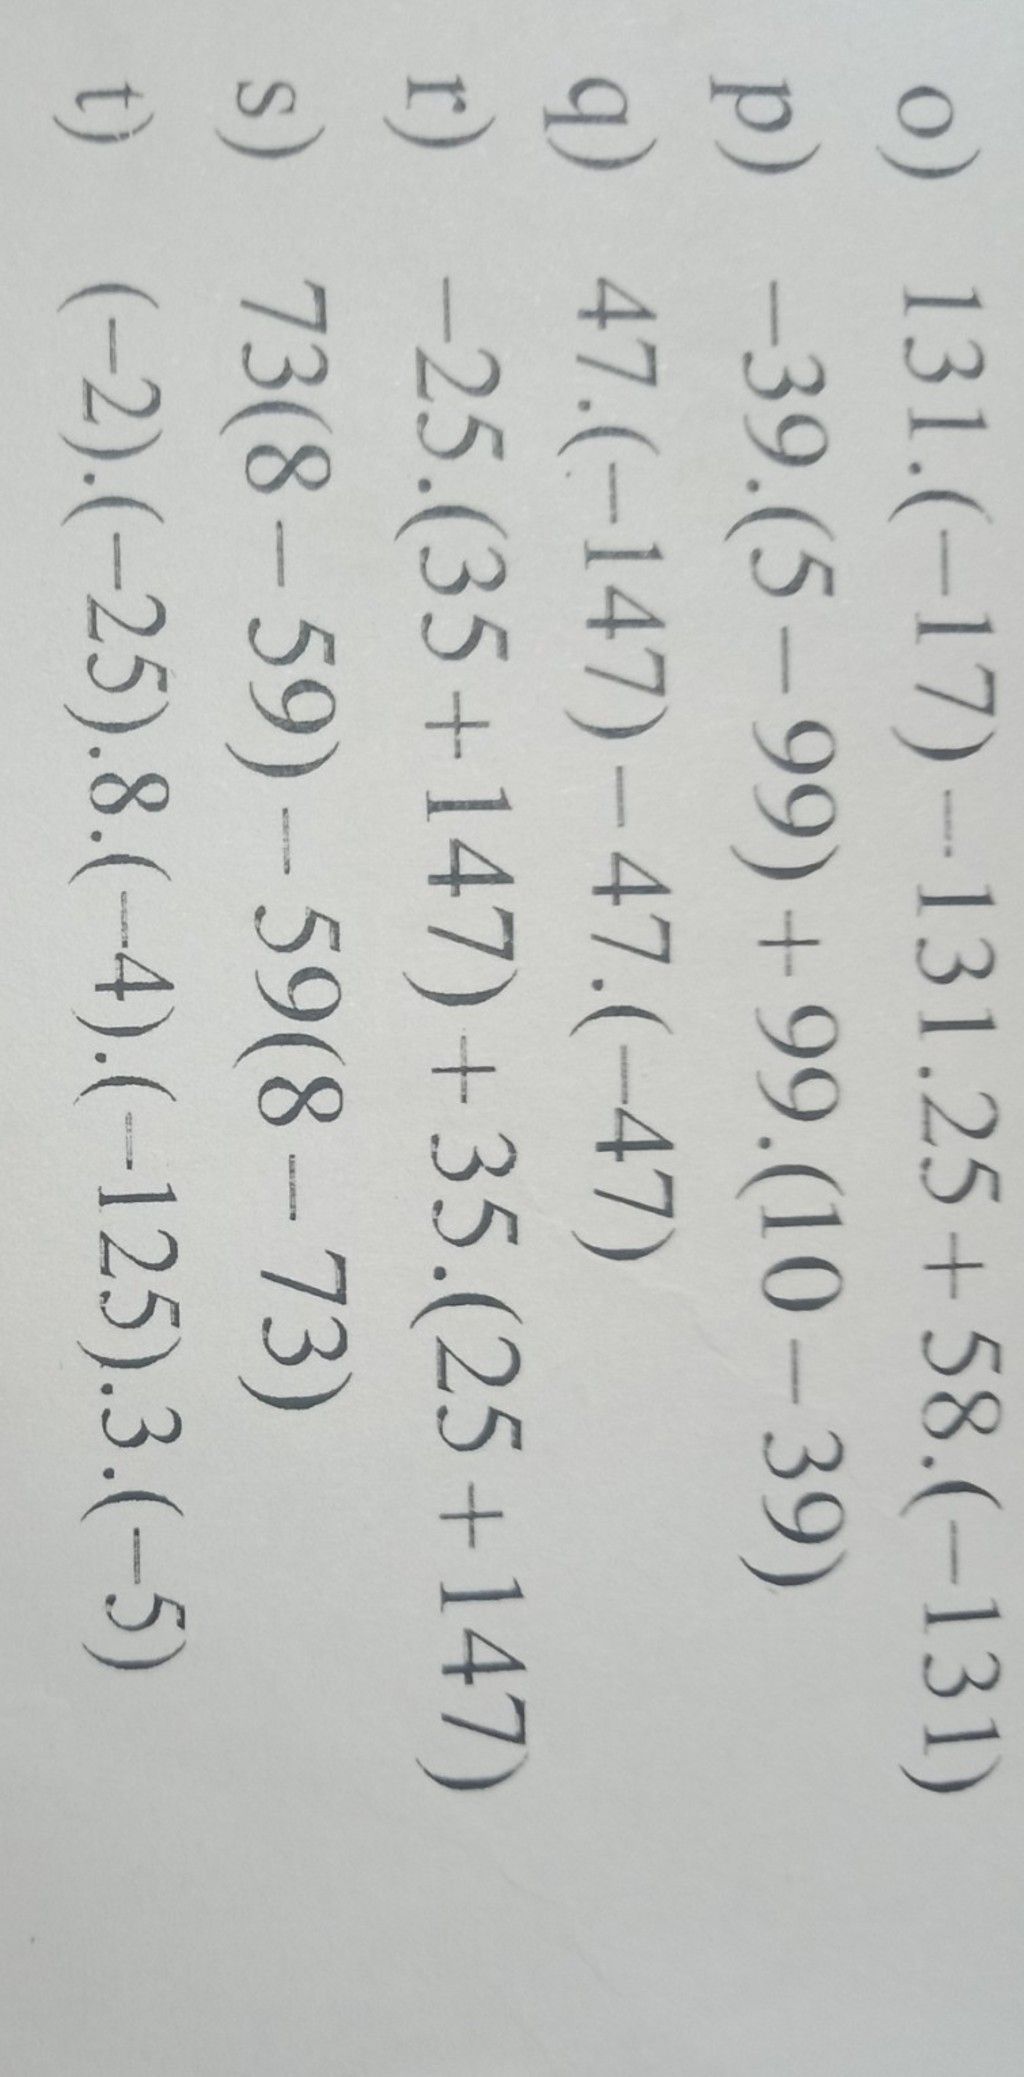 o) 131.(−17) − 131.25 + 58.(−131)
p) −39.(5 − 99) + 99.(10 − 39)
q) 47.(−147) − 47.(−47)
r) −25.(35 + 147) + 35.(25 + 147)
s) 73(8 − 59) − 59(8 − 73)
t) (−2).(−25).8.(−4).(−125).3.(−5)